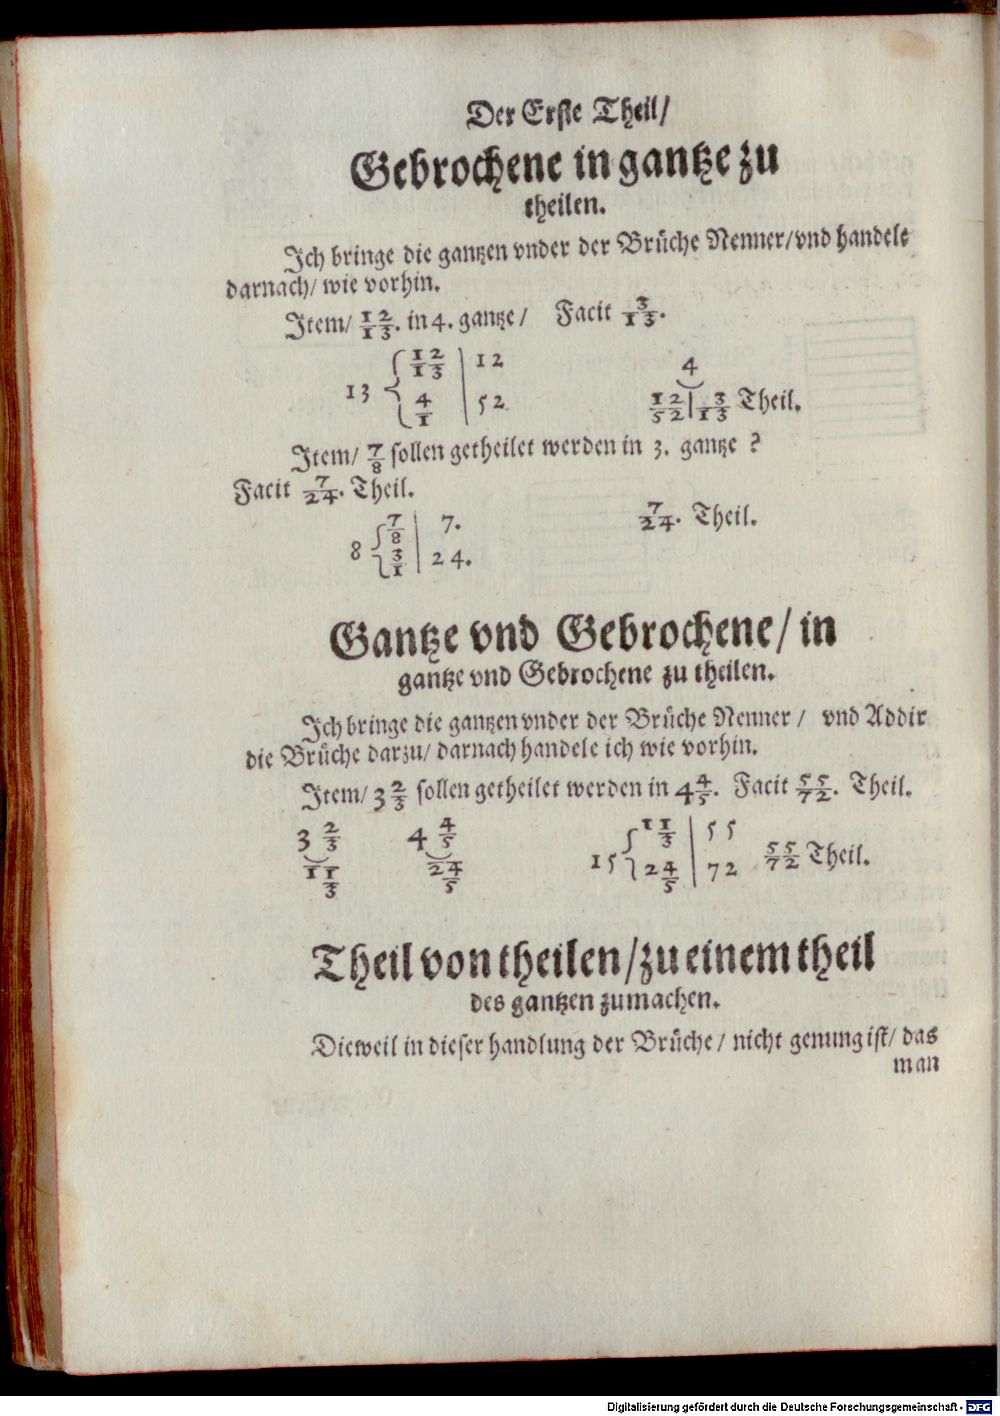 Der Erste Theil/
Gebrochene in gantze zu
theilen.
Ich bringe die gantzen vnder der Brüche Nenner/vnd handele
darnach/ wie vorhin.
Item/ 12/13. in 4. gantze/ Facit 3/13.
12/13 | 12 4
13 { 4/1 | 52 12/52 | 3/13 Theil.
Item/ 7/8 sollen getheilet werden in 3. gantze ?
Facit 7/24. Theil.
7/8 | 7. 7/24. Theil.
8 { 3/1 | 24.
Gantze vnd Gebrochene/ in
gantze vnd Gebrochene zu theilen.
Ich bringe die gantzen vnder der Brüche Nenner/ vnd Addir
die Brüche darzu/ darnach handele ich wie vorhin.
Item/ 3 2/3 sollen getheilet werden in 4 4/5. Facit 55/72. Theil.
3 2/3 4 4/5 11/3 | 55
11/3 24/5 15 { 24/5 | 72 55/72 Theil.
Theil von theilen/zu einem theil
des gantzen zumachen.
Dieweil in dieser handlung der Brüche/ nicht genung ist/ das
man
Digitalisierung gefördert durch die Deutsche Forschungsgemeinschaft - DFG